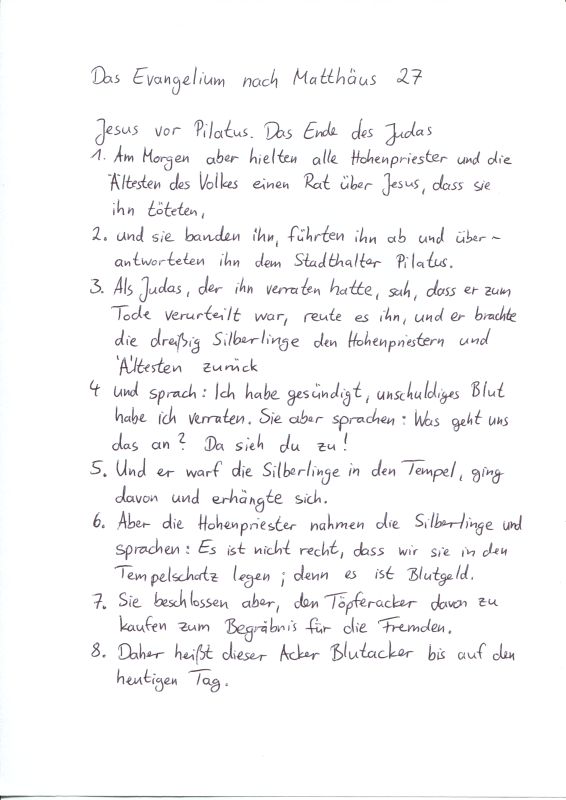 Das Evangelium nach Matthäus 27
Jesus vor Pilatus. Das Ende des Judas
1. Am Morgen aber hielten alle Hohenpriester und die
Ältesten des Volkes einen Rat über Jesus, dass sie
ihn töteten,
2. und sie banden ihn, führten ihn ab und über-
antworteten ihn dem Stadthalter Pilatus.
3. Als Judas, der ihn verraten hatte, sah, dass er zum
Tode verurteilt war, reute es ihn, und er brachte
die dreißig Silberlinge den Hohenpriestern und
Ältesten zurück
4 und sprach: Ich habe gesündigt, unschuldiges Blut
habe ich verraten. Sie aber sprachen: Was geht uns
das an? Da sieh du zu!
5. Und er warf die Silberlinge in den Tempel, ging
davon und erhängte sich.
6. Aber die Hohenpriester nahmen die Silberlinge und
sprachen: Es ist nicht recht, dass wir sie in den
Tempelschatz legen; denn es ist Blutgeld.
7. Sie beschlossen aber, den Töpferacker davon zu
kaufen zum Begräbnis für die Fremden.
8. Daher heißt dieser Acker Blutacker bis auf den
heutigen Tag.